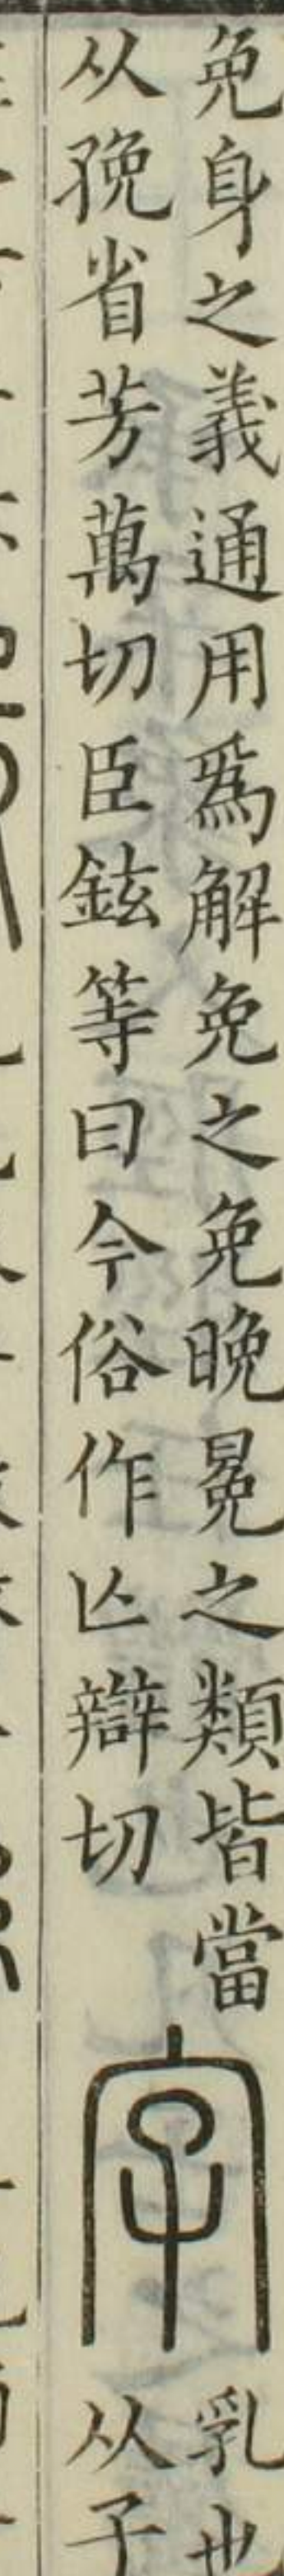 免身之義通用爲解免之免晚冕之類皆當
从㝃省芳萬切臣鉉等曰今俗作亾辯切
字
乳也
从子